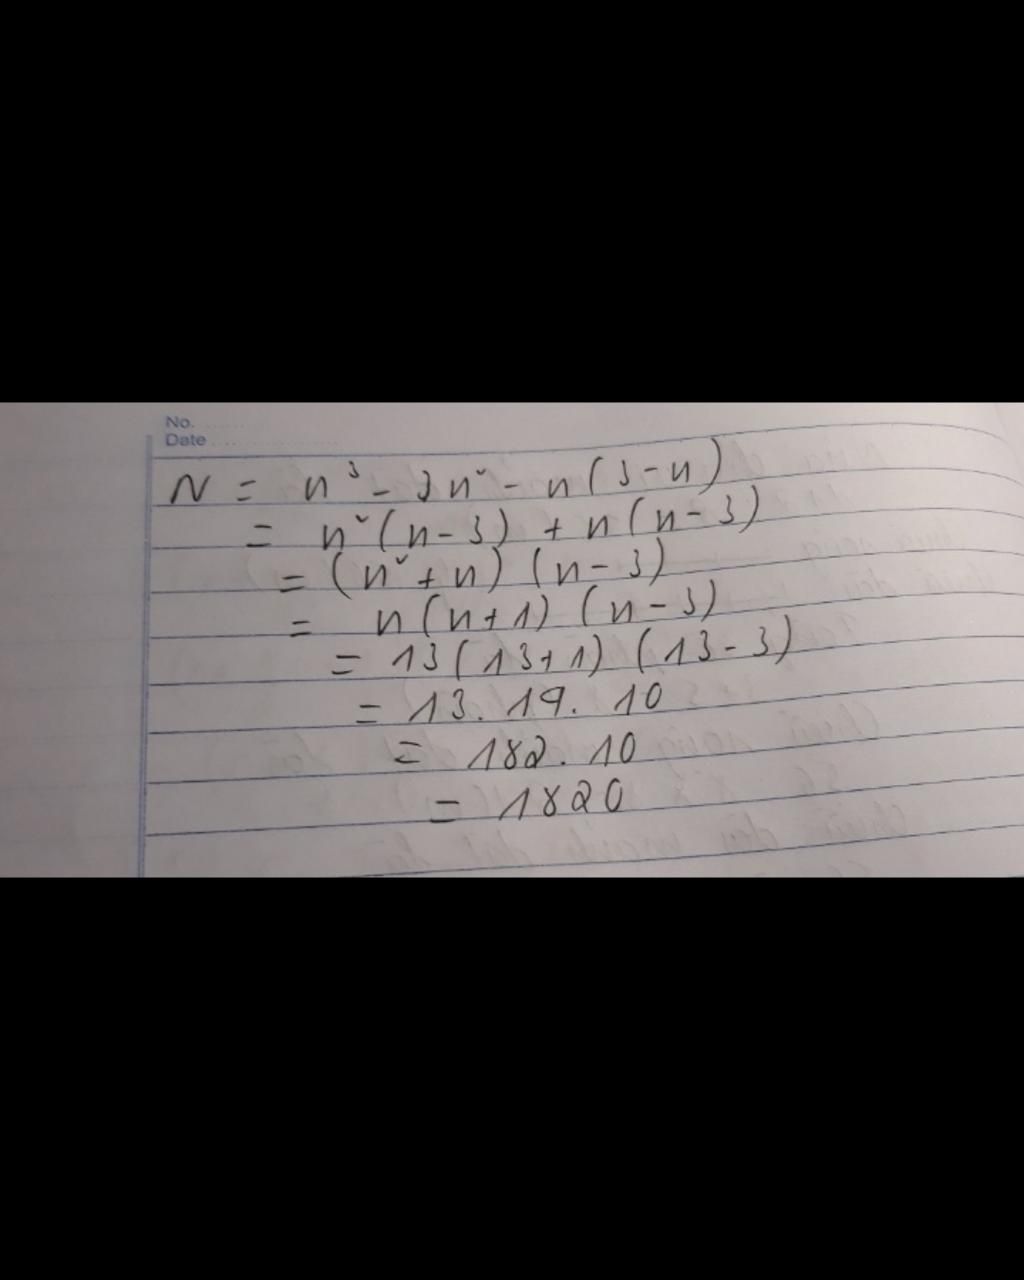 No.
Date
N = n³ - 3n² - n(3-n)
= n²(n-3) + n(n-3)
= (n²+n) (n-3)
= n(n+1) (n-3)
= 13(13+1) (13-3)
= 13.14.10
= 182.10
= 1820